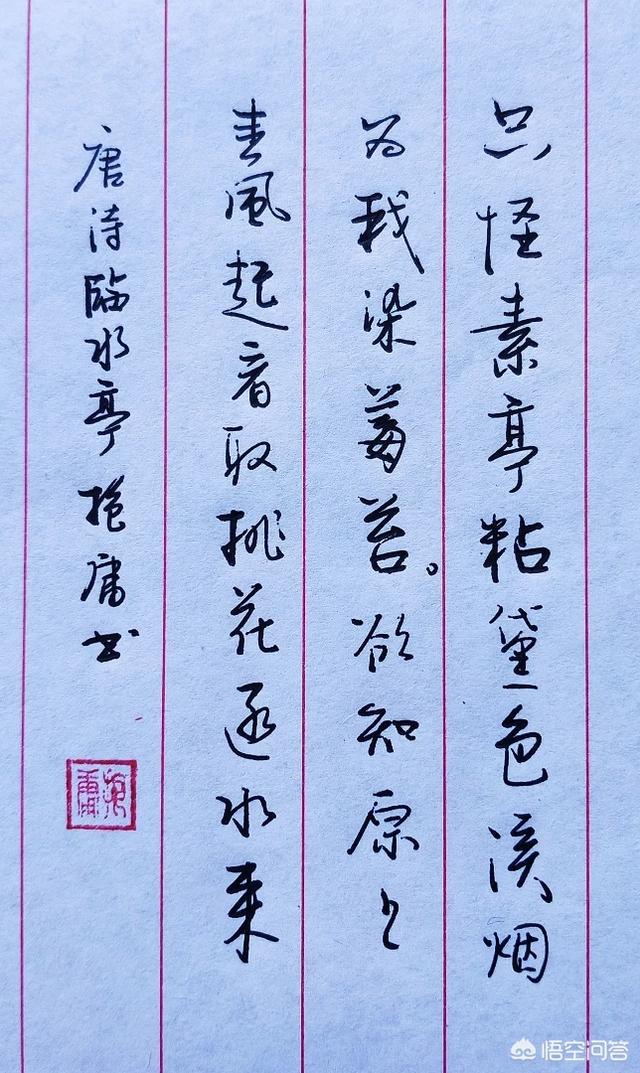 只怪素亭粘黛色溪烟
为我染莓苔。欲知原上
春風起看取桃花逐水来
唐诗臨水亭 抱庸书
悟空问答